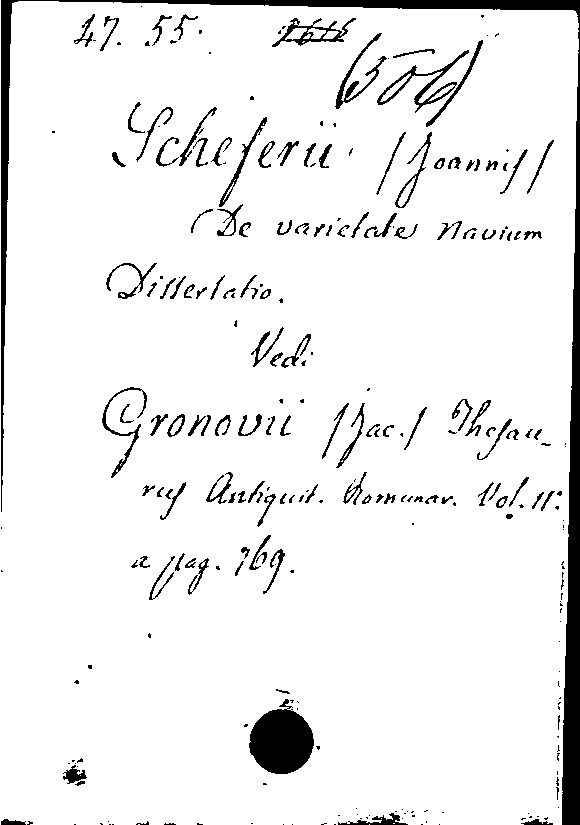 47. 55.
(506)
Scheferii. /Joannis/
De varietate navium
Dissertatio.
Vedi
Gronovii /Jac./ Thesau-
rus Antiquit. Romanar. Vol. 11:
a pag. 769.